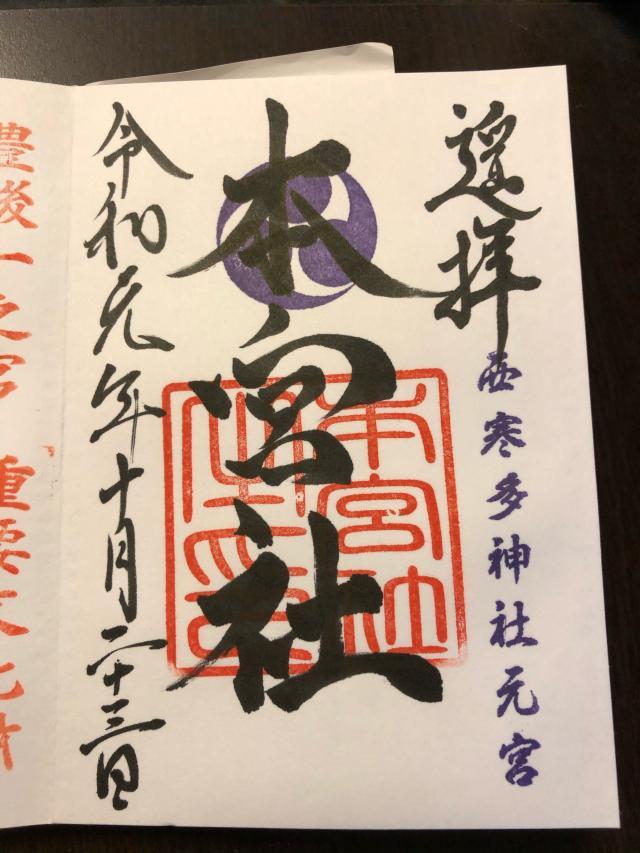 遥拝
西寒多神社元宮
本宮社
本宮社
令和元年十月二十三日
豊後一之宮 重要文化財